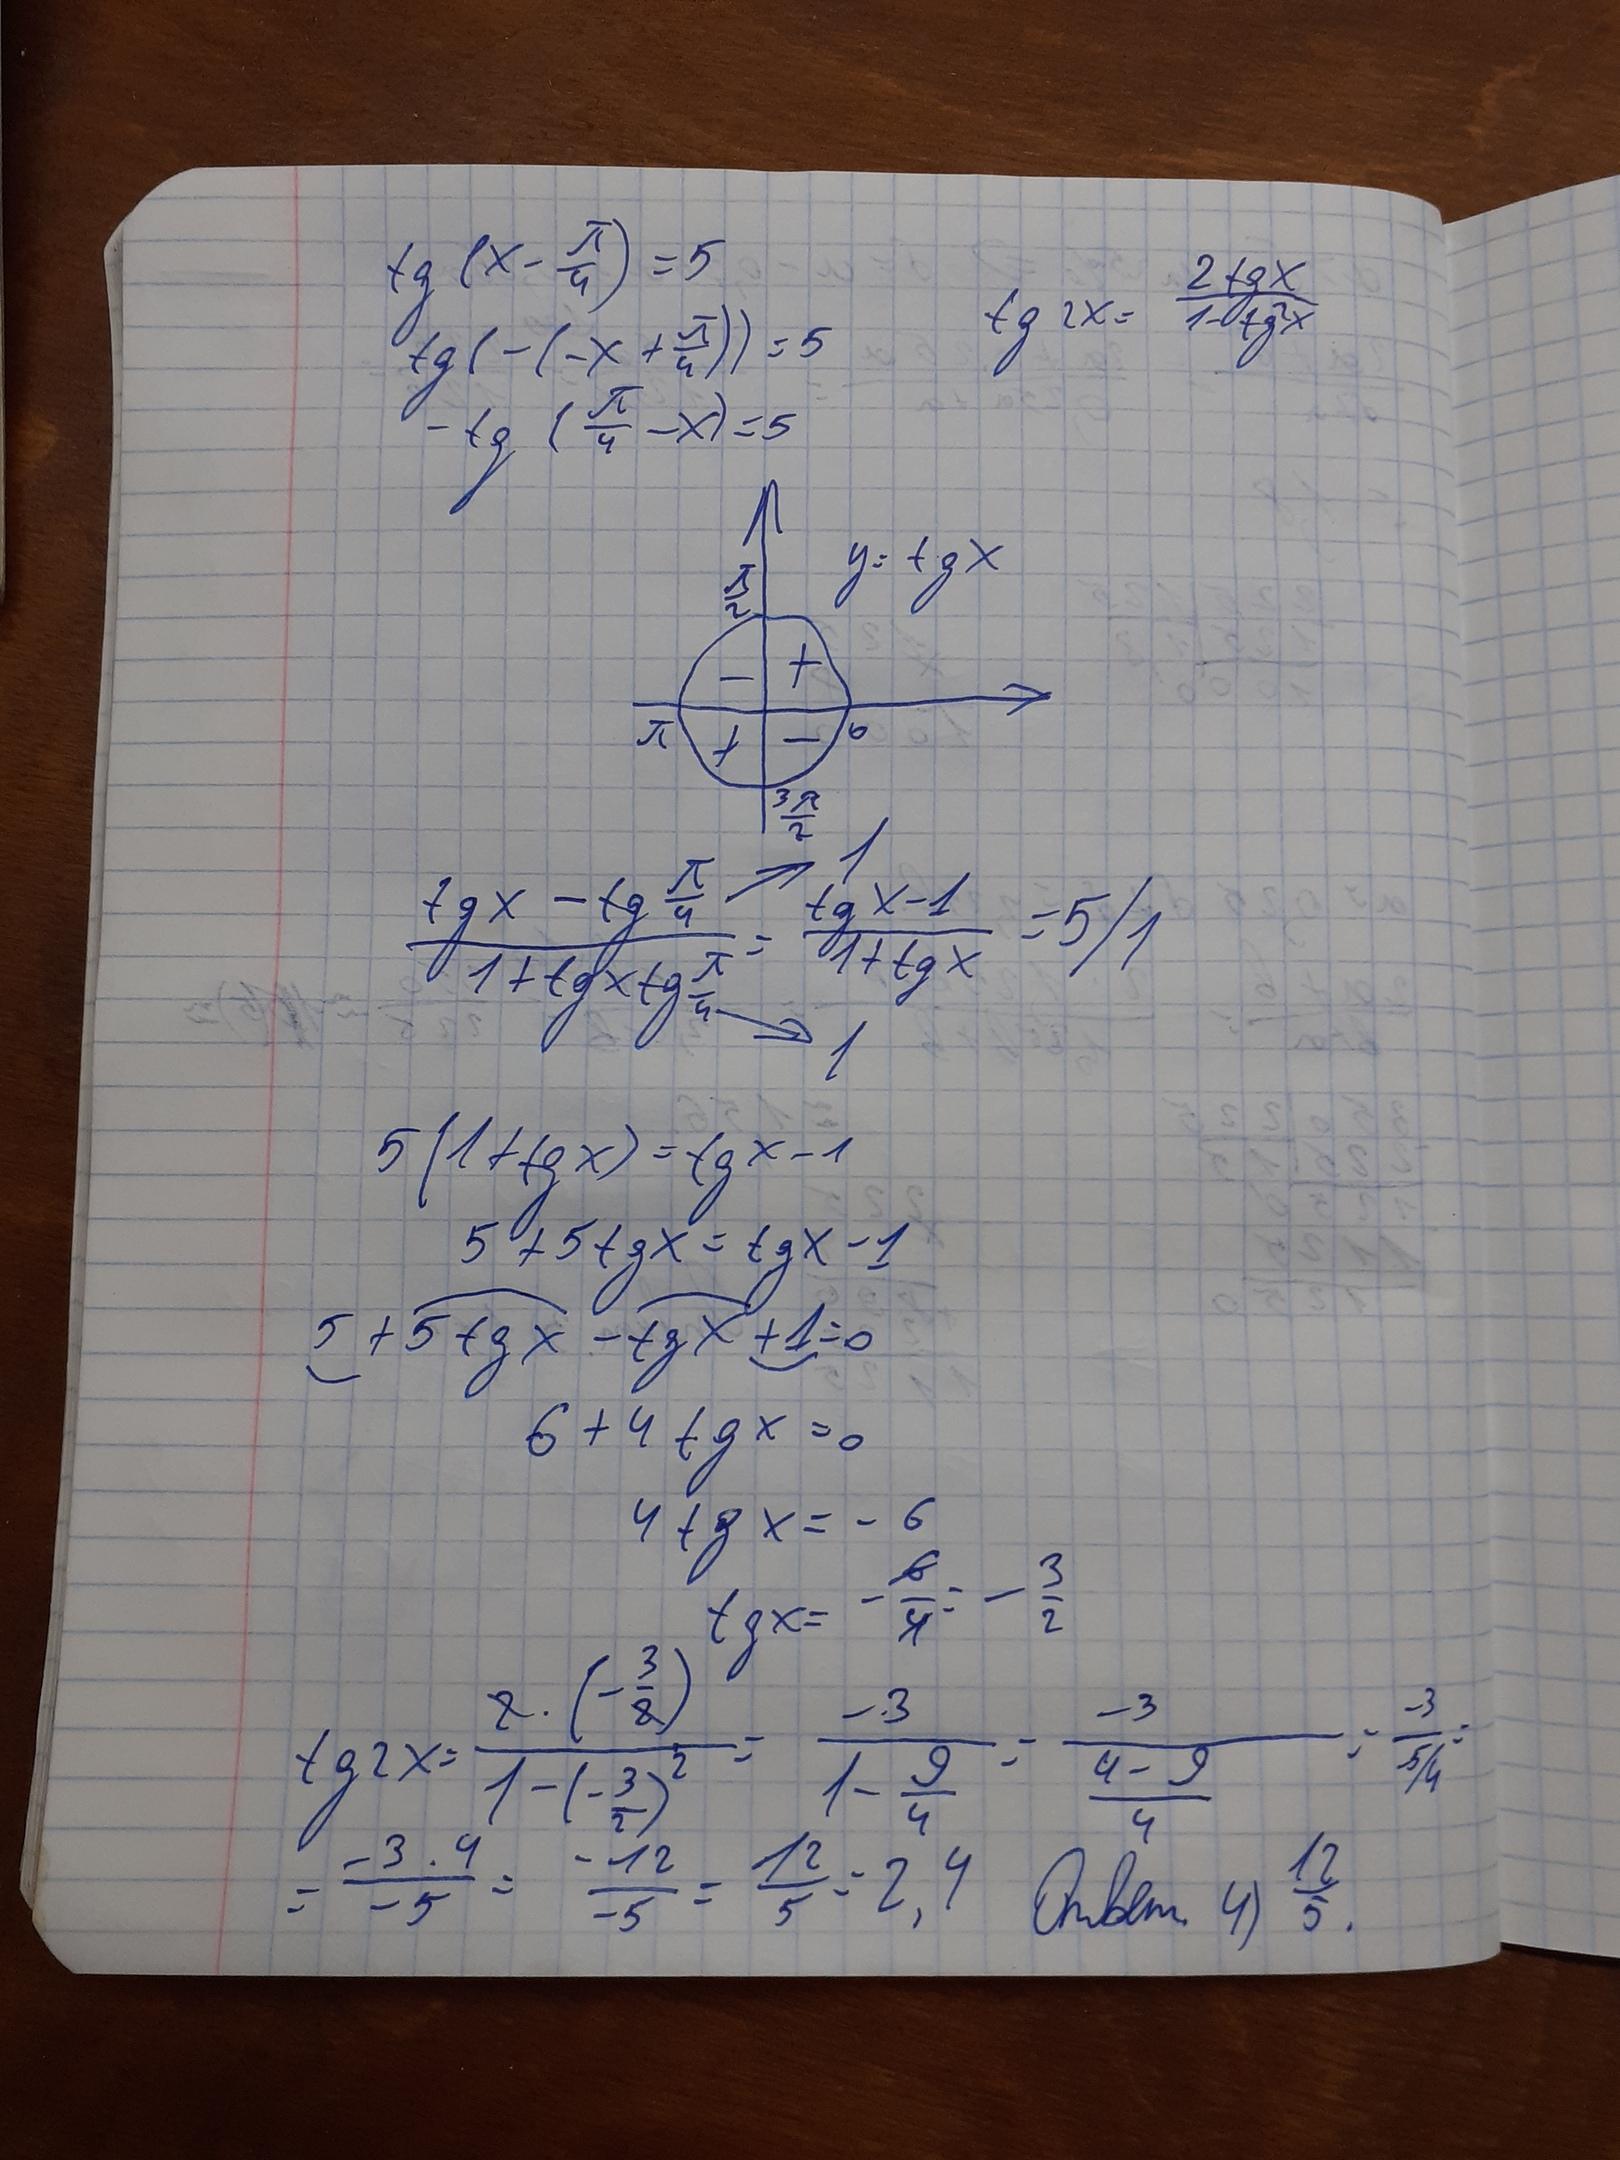 tg (x - π/4) = 5
tg 2x = 2tgx/1-tg²x
tg (-(-x + π/4)) = 5
-tg (π/4 - x) = 5
y = tgx
π/2
- +
π + - 0
3π/2
1
tgx - tg π/4 / 1+tgx tg π/4 = tgx-1/1+tgx = 5/1
1
5(1+tgx) = tgx-1
5+5tgx = tgx-1
5+5tgx-tgx+1=0
6+4tgx=0
4tgx=-6
tgx = -6/4 = -3/2
tg2x = 2·(-3/2)/1-(-3/2)² = -3/1-9/4 = -3/(4-9/4) = -3/5/4 =
= -3·4/-5 = -12/-5 = 12/5 = 2,4 Ответ. 4) 12/5.